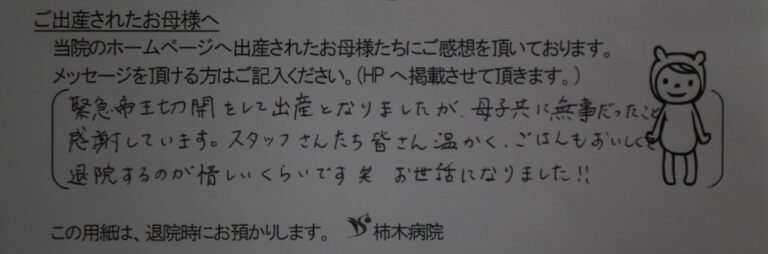 ご出産されたお母様へ
当院のホームページへ出産されたお母様たちにご感想を頂いております。
メッセージを頂ける方はご記入ください。(HPへ掲載させて頂きます。)
緊急帝王切開をして出産となりましたが、母子共に無事だったこと
感謝しています。スタッフさんたち皆さん温かく、ごはんもおいしくて
退院するのが惜しいくらいです笑 お世話になりました!!
この用紙は、退院時にお預かりします。 柿木病院